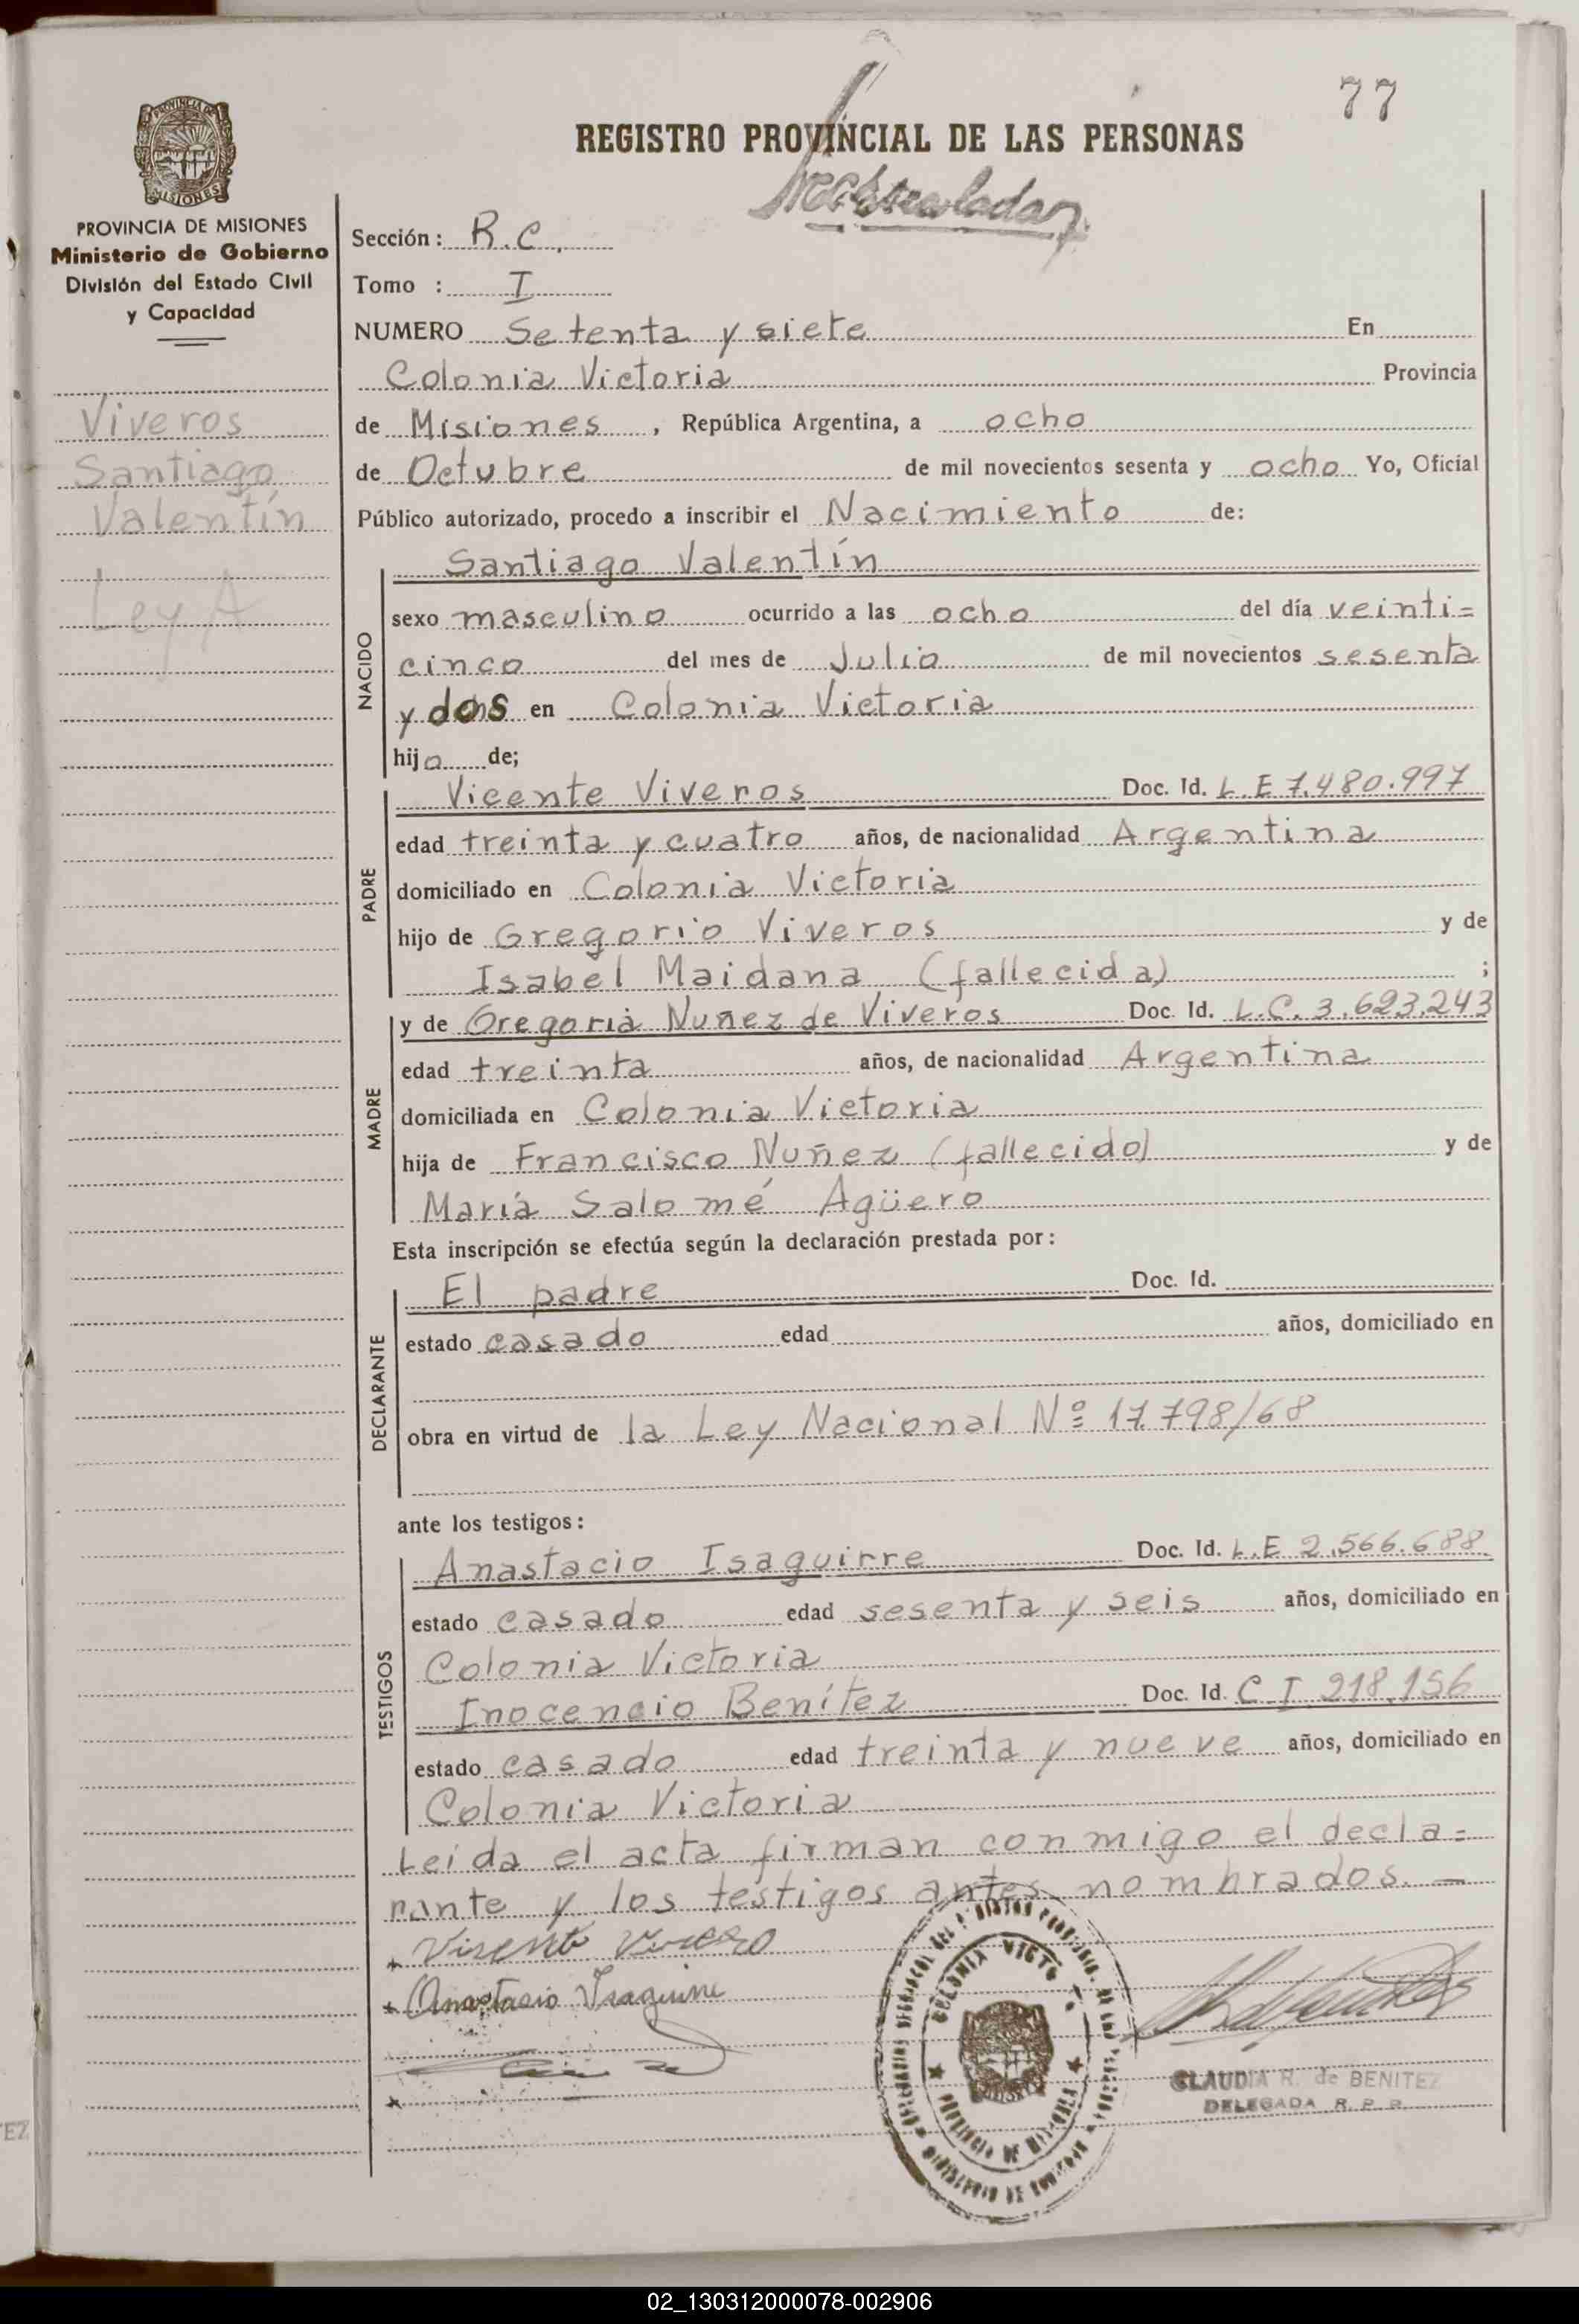 77
REGISTRO PROVINCIAL DE LAS PERSONAS
PROVINCIA DE MISIONES
Ministerio de Gobierno
División del Estado Civil
y Capacidad
Viveros
Santiago
Valentín
Ley A
Sección: R.C.
Tomo : I
NUMERO Setenta y siete En
Colonia Victoria Provincia
de Misiones, República Argentina, a ocho
de Octubre de mil novecientos sesenta y ocho Yo, Oficial
Público autorizado, procedo a inscribir el Nacimiento de:
Santiago Valentín
NACIDO
sexo masculino ocurrido a las ocho del día veinti=
cinco del mes de Julio de mil novecientos sesenta
y dos en Colonia Victoria
hijo de;
Vicente Viveros Doc. Id. L.E 7.480.997
PADRE
edad treinta y cuatro años, de nacionalidad Argentina
domiciliado en Colonia Victoria
hijo de Gregorio Viveros y de
Isabel Maidana (fallecida) ;
y de Gregoria Nuñez de Viveros Doc. Id. L.C. 3.623.243
MADRE
edad treinta años, de nacionalidad Argentina
domiciliada en Colonia Victoria
hija de Francisco Nuñez (fallecido) y de
María Salomé Agüero
Esta inscripción se efectúa según la declaración prestada por:
El padre Doc. Id.
DECLARANTE
estado casado edad años, domiciliado en
obra en virtud de la Ley Nacional Nº 17.798/68
ante los testigos:
Anastacio Isaguirre Doc. Id. L.E 2.566.688.
TESTIGOS
estado casado edad sesenta y seis años, domiciliado en
Colonia Victoria
Inocencio Benítez Doc. Id. C I 218.156
estado casado edad treinta y nueve años, domiciliado en
Colonia Victoria
Leída el acta firman conmigo el decla=
rante y los testigos antes nombrados. —
Anastasio Isaguirre
COLONIA VICTO
PROVINCIA DE MISIONES
CLAUDIA R. de BENITEZ
DELEGADA R. P. P.
EZ
02_130312000078-002906